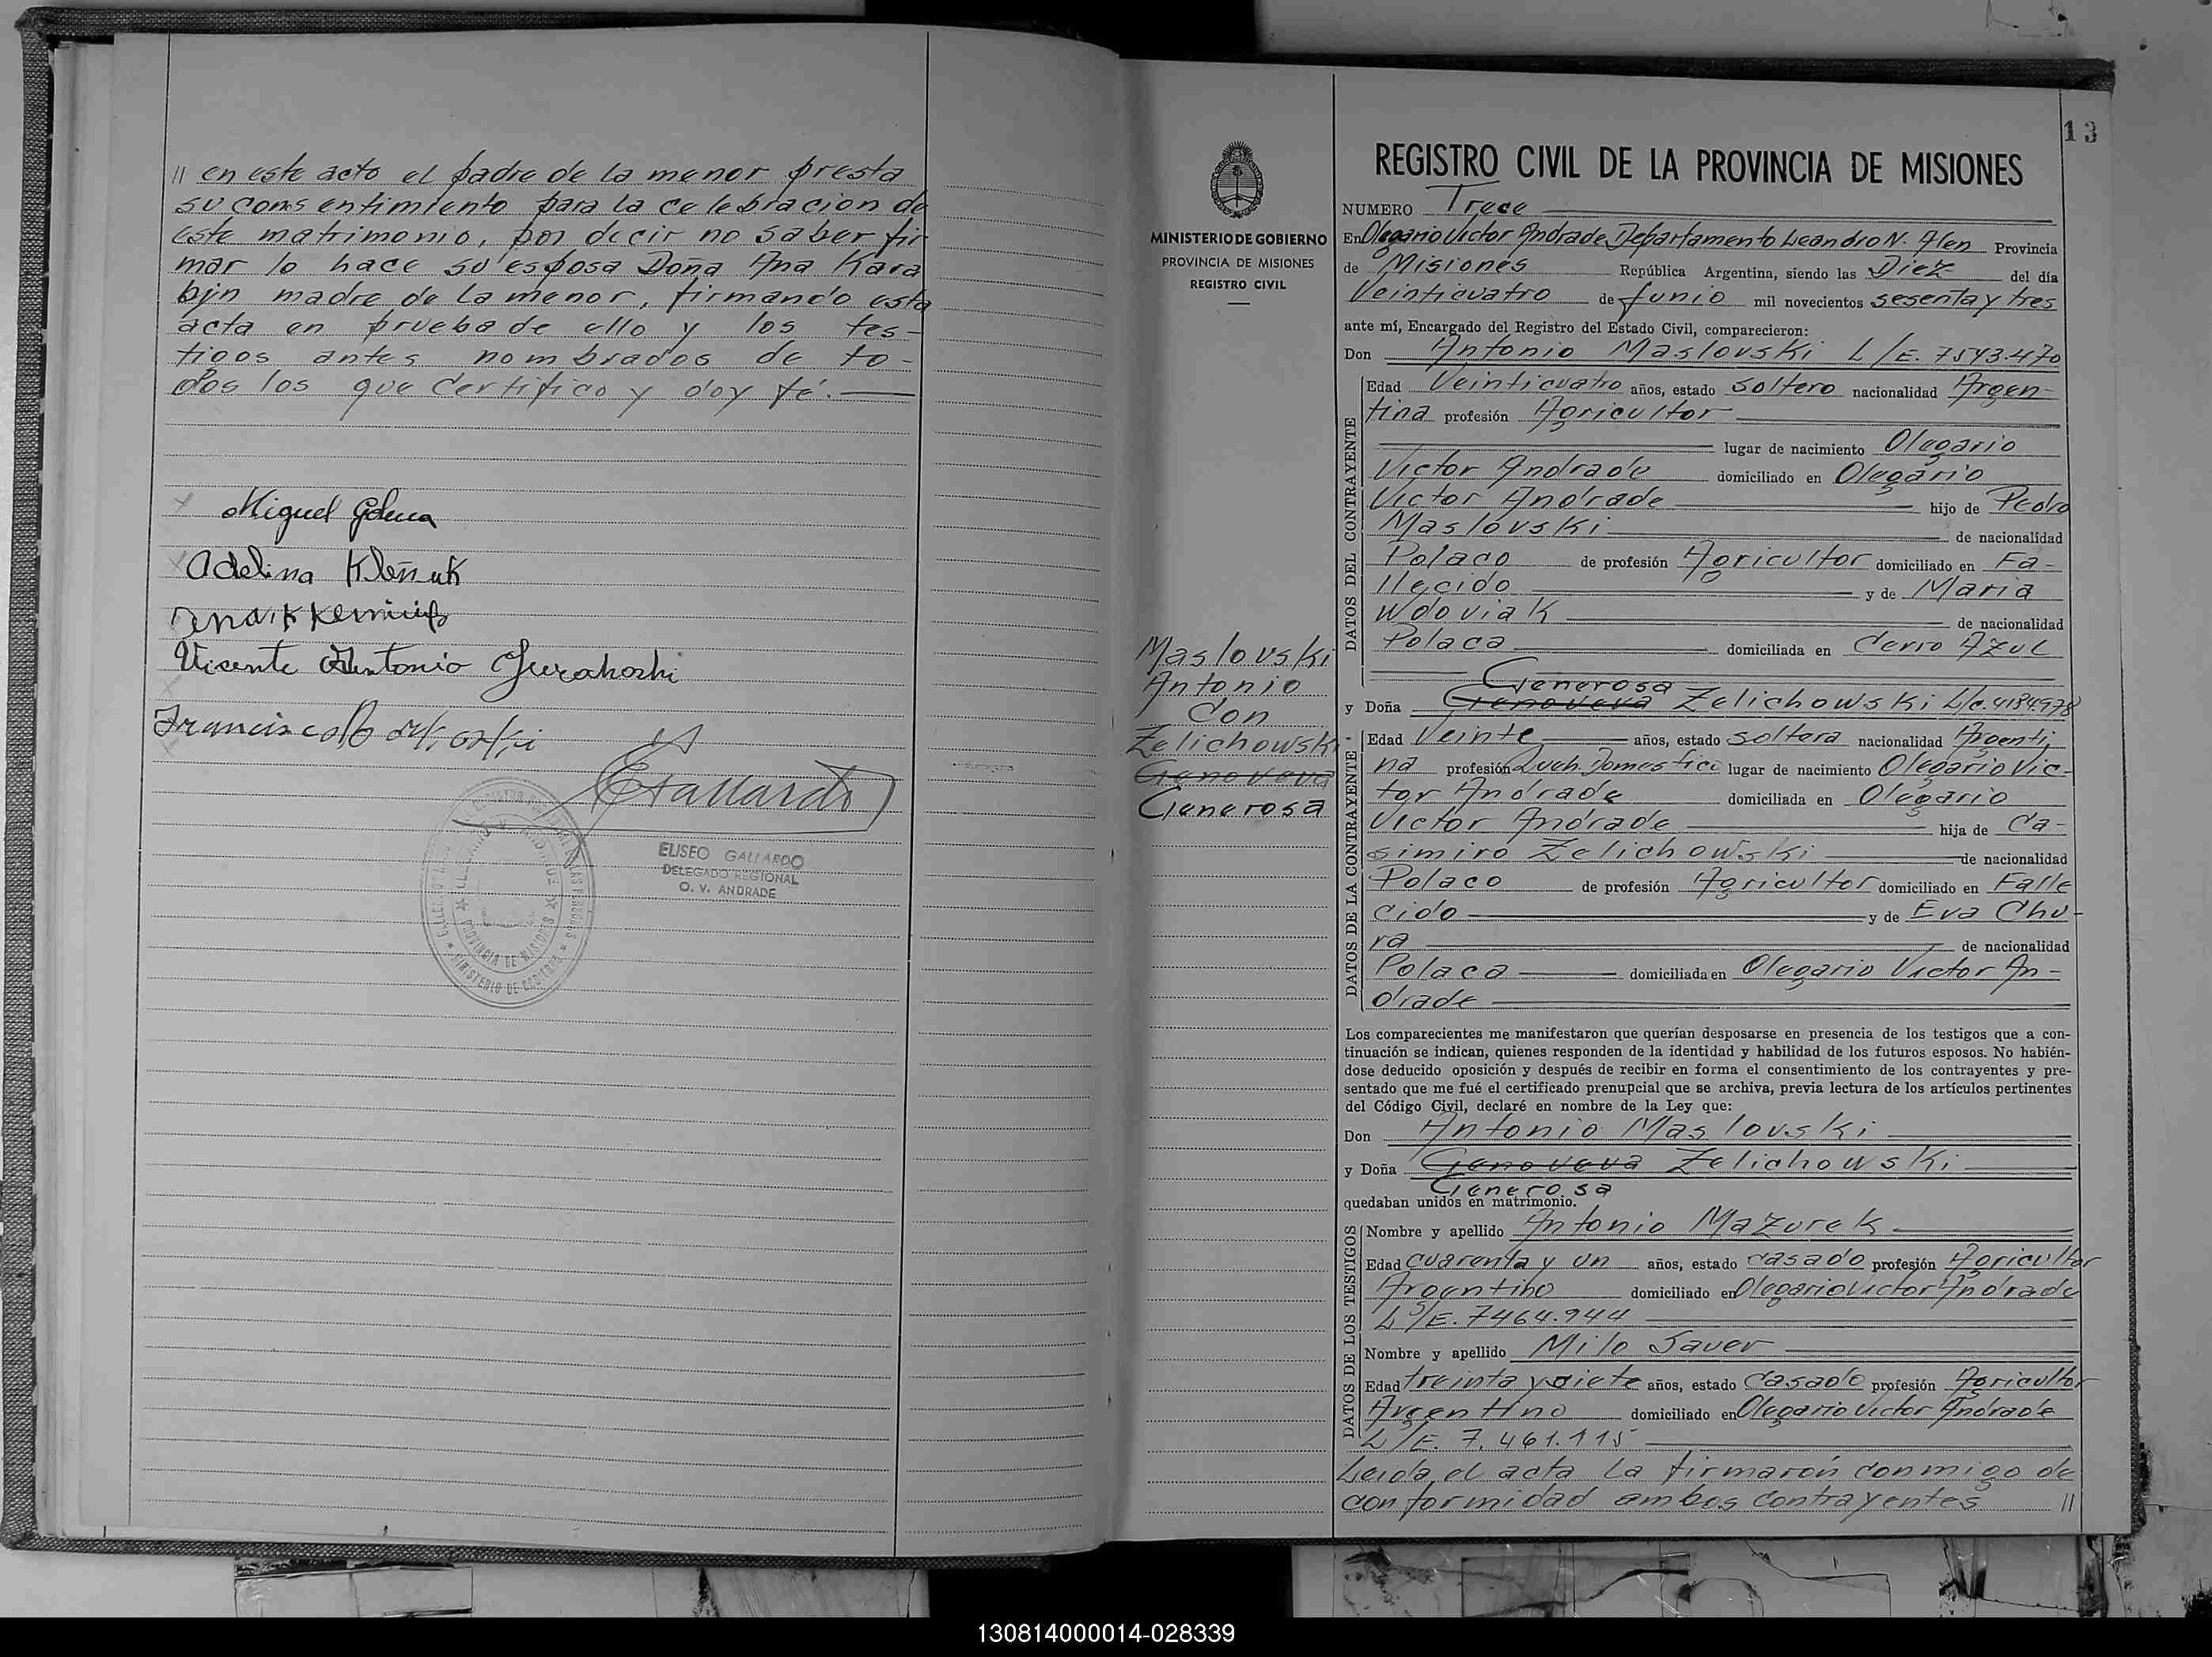 // en este acto el padre de la menor presta
su consentimiento para la celebracion de
este matrimonio, por decir no saber fir
mar lo hace su esposa Doña Ana Kara
bin madre de la menor, firmando esta
acta en prueba de ello y los tes-
tigos antes nombrados de to-
dos los que certifico y doy fé.
Miguel
Adelina
Vicente Antonio
Francisco
EGallardo
ELISEO GALLARDO
DELEGADO REGIONAL
O. V. ANDRADE
PROVINCIA DE MISIONES
MINISTERIO DE GOBIERNO
MINISTERIO DE GOBIERNO
PROVINCIA DE MISIONES
REGISTRO CIVIL
Maslovski
Antonio
con
Zelichowski
Genoveva
Generosa
13
REGISTRO CIVIL DE LA PROVINCIA DE MISIONES
NUMERO Trece
En Olegario Victor Andrade Departamento Leandro N. Alen Provincia
de Misiones República Argentina, siendo las Diez del día
Veinticuatro de Junio mil novecientos sesenta y tres
ante mí, Encargado del Registro del Estado Civil, comparecieron:
Don Antonio Maslovski L/E. 7543.470
DATOS DEL CONTRAYENTE
Edad Veinticuatro años, estado soltero nacionalidad Argen-
tina profesión Agricultor
lugar de nacimiento Olegario
Victor Andrade domiciliado en Olegario
Victor Andrade hijo de Pedro
Maslovski de nacionalidad
Polaco de profesión Agricultor domiciliado en Fa-
llecido y de Maria
Wdoviak de nacionalidad
Polaca domiciliada en Cerro Azul
Generosa
y Doña Genoveva Zelichowski L/c. 4184978
DATOS DE LA CONTRAYENTE
Edad Veinte años, estado soltera nacionalidad Argenti
na profesión Queh. Domestico lugar de nacimiento Olegario Vic-
tor Andrade domiciliada en Olegario
Victor Andrade hija de Ca-
simiro Zelichowski de nacionalidad
Polaco de profesión Agricultor domiciliado en Falle
cido y de Eva Chu-
ra de nacionalidad
Polaca domiciliada en Olegario Victor An-
drade
Los comparecientes me manifestaron que querían desposarse en presencia de los testigos que a con-
tinuación se indican, quienes responden de la identidad y habilidad de los futuros esposos. No habién-
dose deducido oposición y después de recibir en forma el consentimiento de los contrayentes y pre-
sentado que me fué el certificado prenupcial que se archiva, previa lectura de los artículos pertinentes
del Código Civil, declaré en nombre de la Ley que:
Don Antonio Maslovski
y Doña Genoveva Zelichowski
Generosa
quedaban unidos en matrimonio.
DATOS DE LOS TESTIGOS
Nombre y apellido Antonio Mazurek
Edad cuarenta y un años, estado casado profesión Agricultor
Argentino domiciliado en Olegario Victor Andrade
L/E. 7464.944
Nombre y apellido Milo Sauer
Edad treinta y siete años, estado casado profesión Agricultor
Argentino domiciliado en Olegario Victor Andrade
L/E. 7.461.115
Leida el acta la firmarón conmigo de
conformidad ambos contrayentes //
130814000014-028339